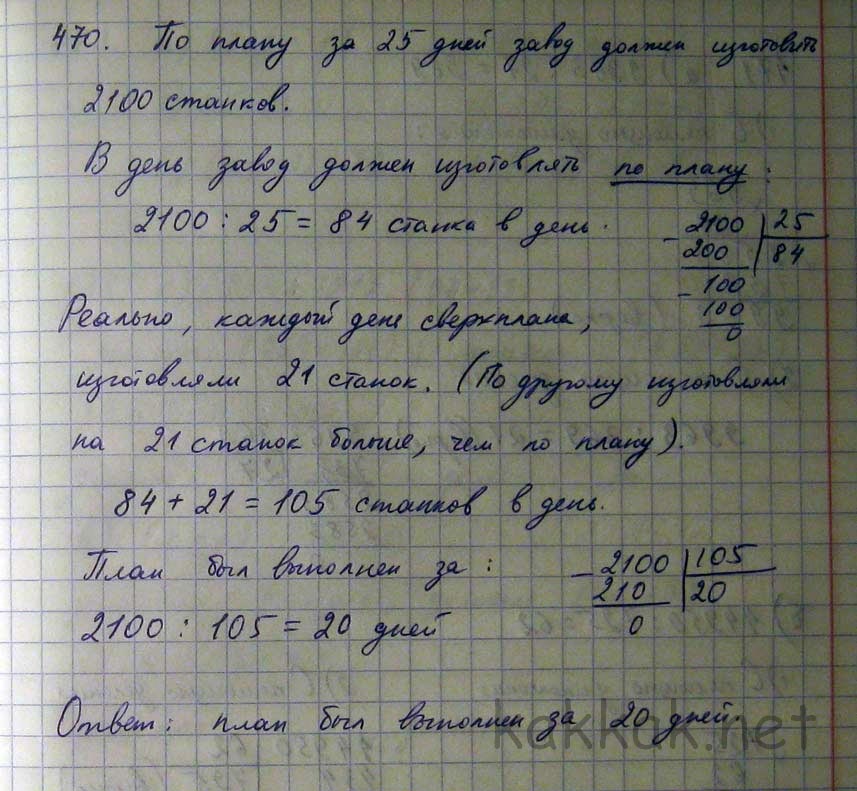 470. По плану за 25 дней завод должен изготовить
2100 станков.
В день завод должен изготовлять по плану:
2100 : 25 = 84 станка в день.
- 2100 | 25
200 | 84
- 100
100
0
Реально, каждый день сверхплана,
изготовляли 21 станок. (По другому изготовляли
на 21 станок больше, чем по плану).
84 + 21 = 105 станков в день.
План был выполнен за :
2100 : 105 = 20 дней
- 2100 | 105
210 | 20
0
Ответ: план был выполнен за 20 дней.
kakkak.net